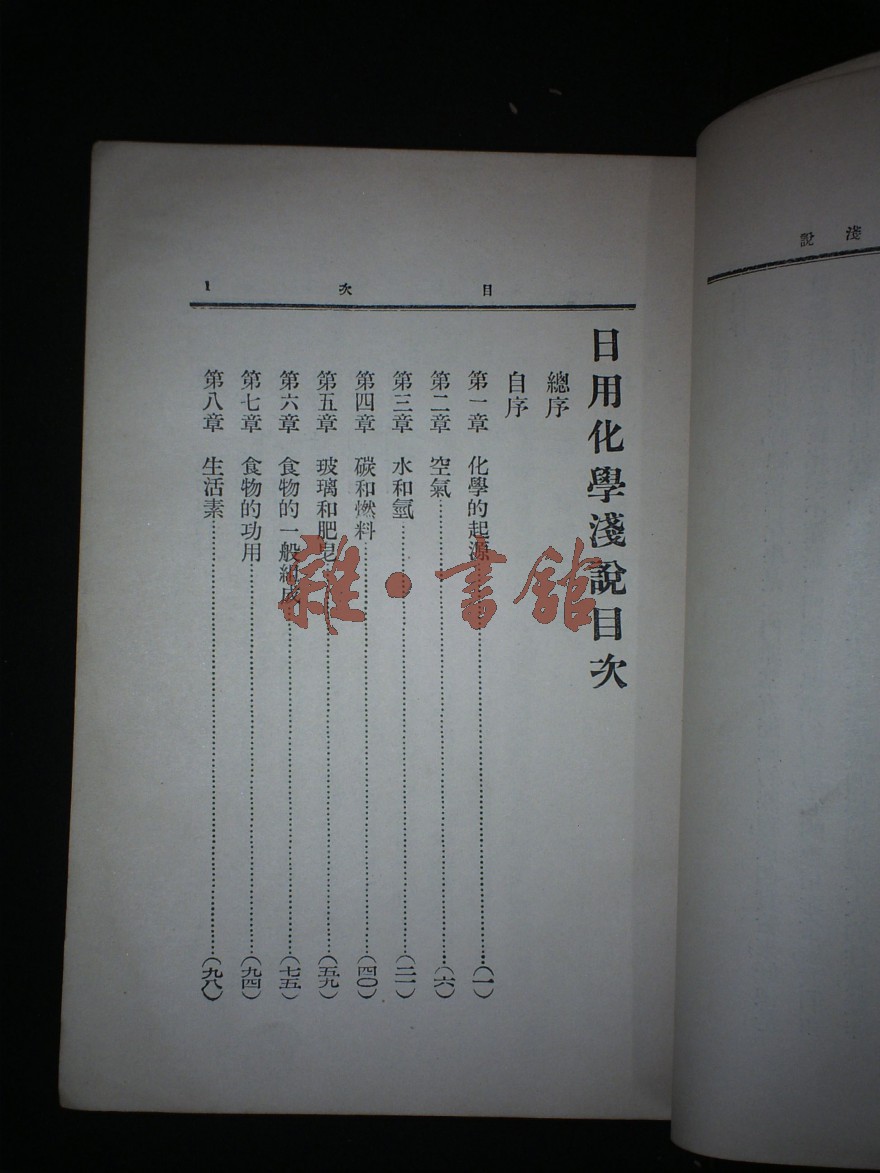 目次 1
日用化學淺說目次
總序
自序
第一章 化學的起源……(一)
第二章 空氣……(六)
第三章 水和氫……(二一)
第四章 碳和燃料……(四〇)
第五章 玻璃和肥皂……(五九)
第六章 食物的一般組成……(七五)
第七章 食物的功用……(九四)
第八章 生活素……(九八)
淺說
雜·書館